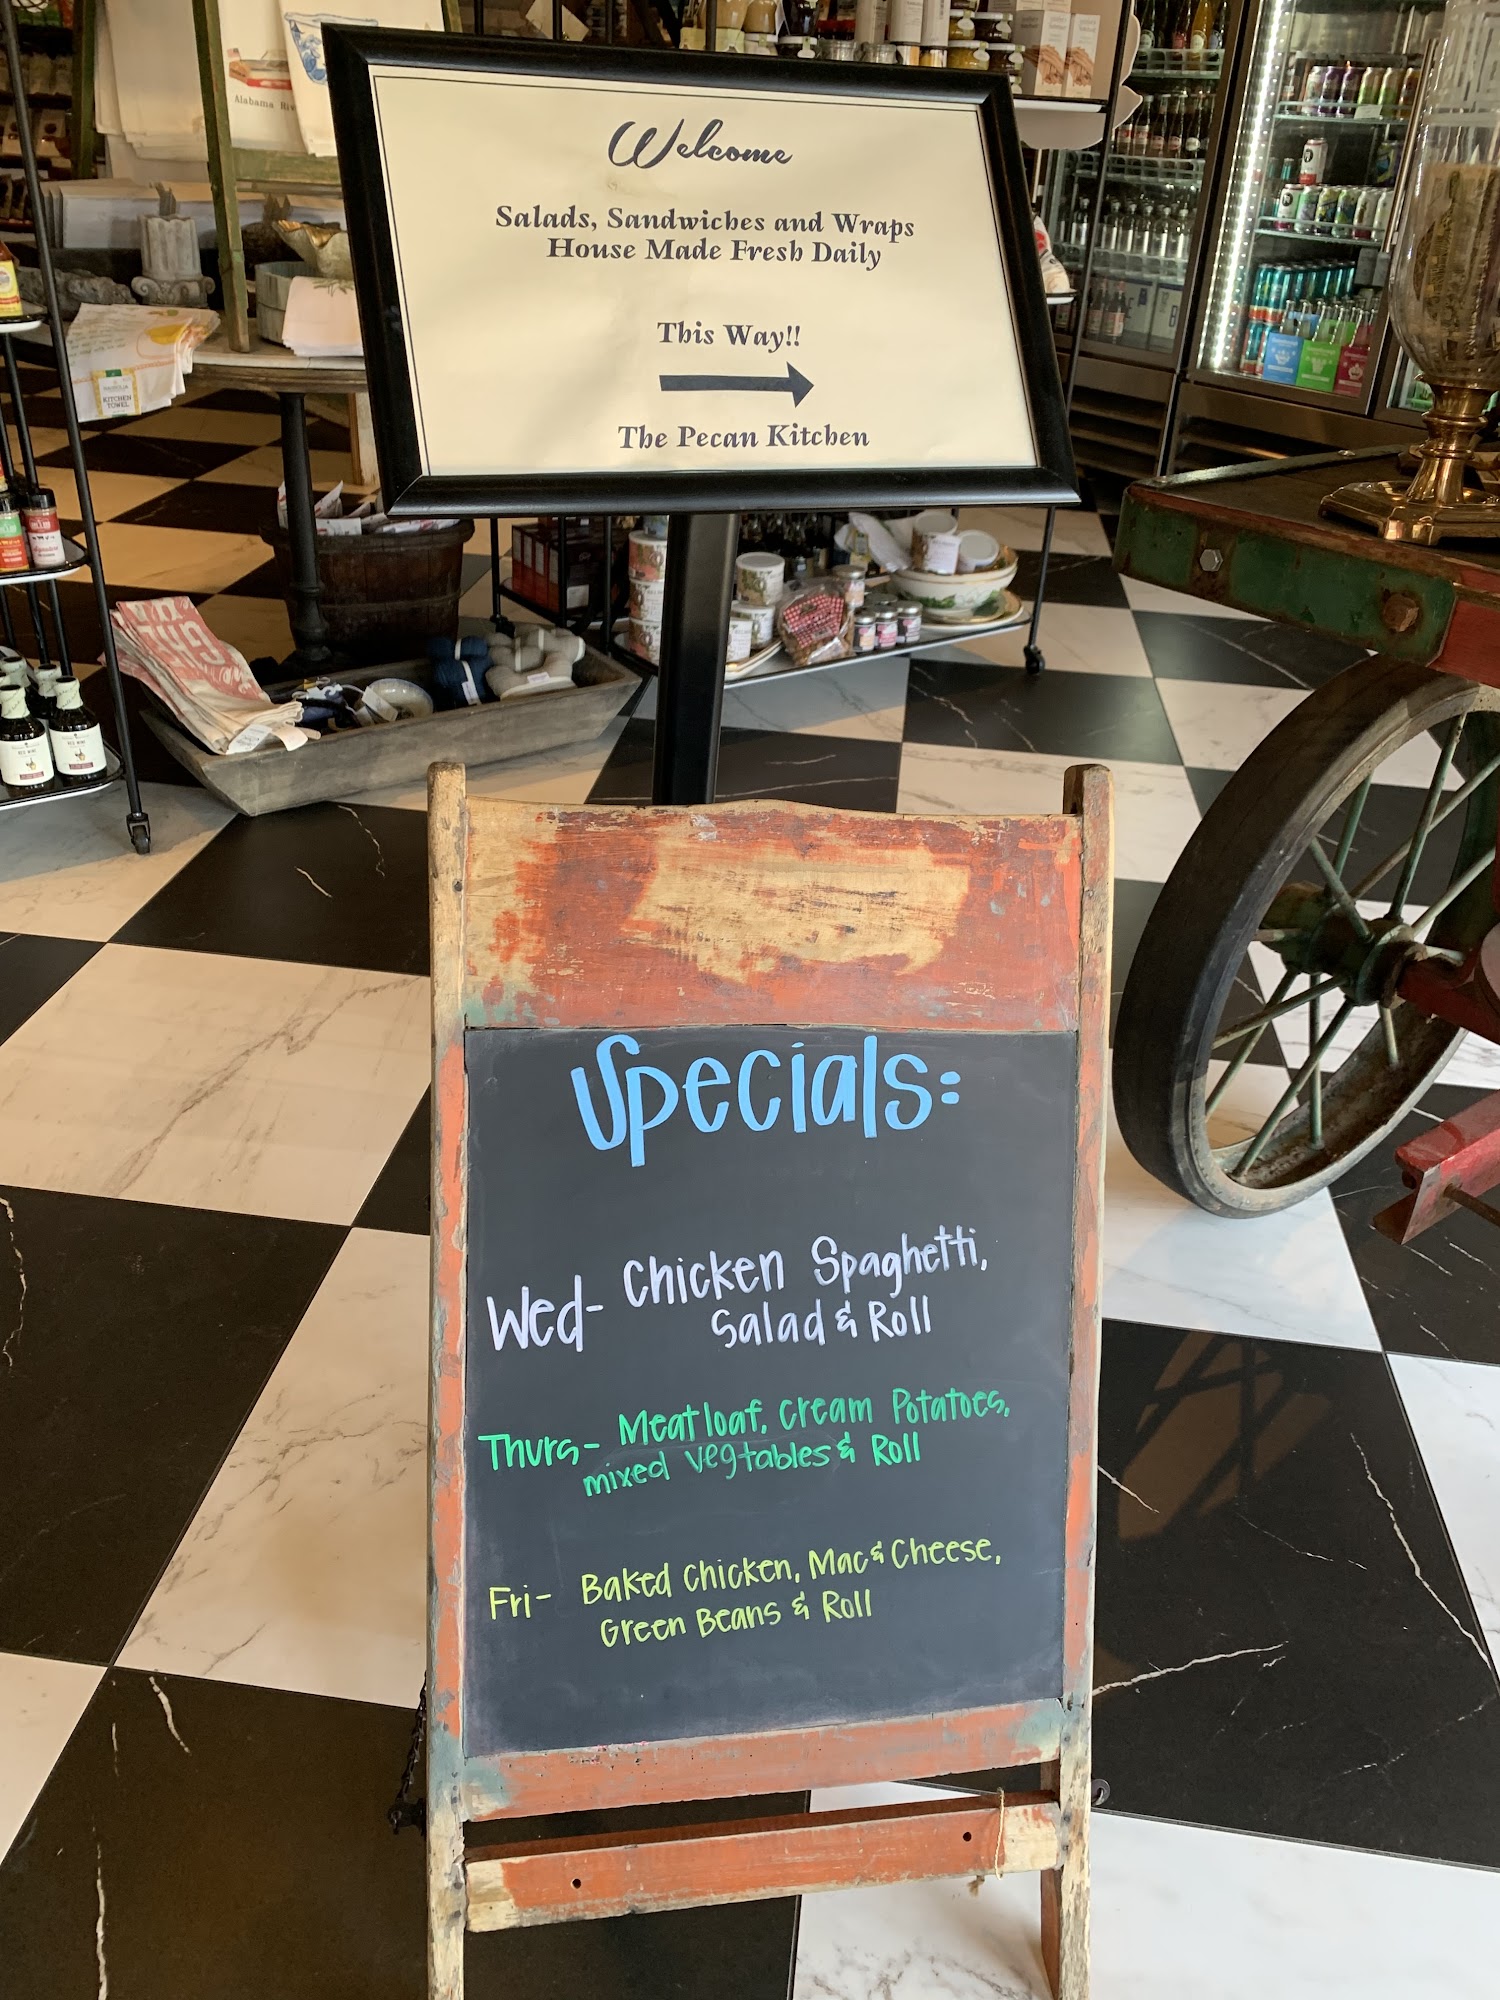 Welcome
Salads, Sandwiches and Wraps
House Made Fresh Daily
This Way!!
The Pecan Kitchen
Specials:
Wed- Chicken Spaghetti,
Salad & Roll
Thurs- Meatloaf, Cream Potatoes,
mixed vegtables & Roll
Fri- Baked Chicken, Mac & Cheese,
Green Beans & Roll
Alabama
KITCHEN
TOWEL
RED WINE